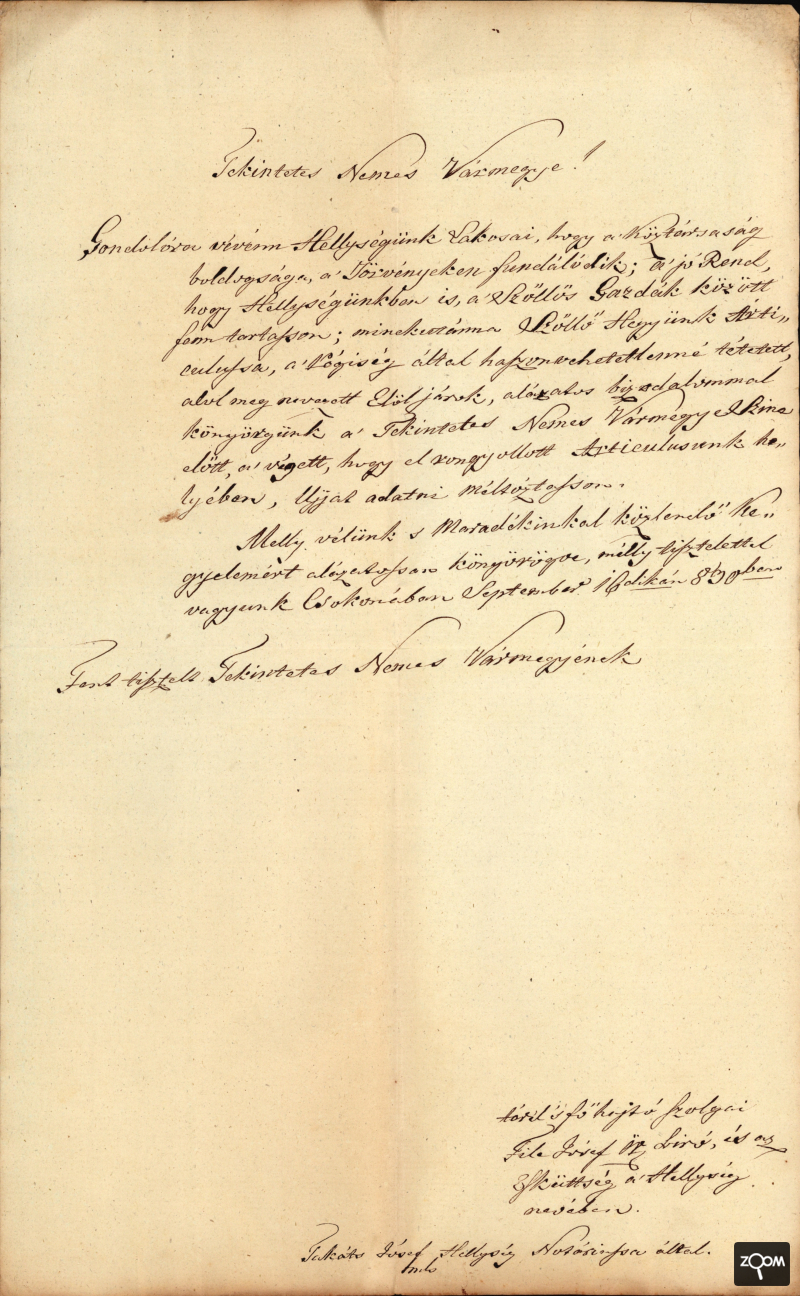 Tekintetes Nemes Vármegye!
Gondolóra vivénn Hellységünk Lakosai, hogy a' Köztársaság
boldogsága, a' Törvényeken fundálódik; a' jó Rend,
hogy Hellységünkben is, a' Szőllős Gazdák között
fenn tartasson; minekutánna Szőllő Hegyünk Arti„
culussa, a' Régiség által haszonvehetetlenné tétetett,
alol meg nevezett Elöljárok, alázatos bizodalommal
könyörgünk a' Tekintetes Nemes Vármegye Szine
előtt, a' végett, hogy el rongyollott Articulusunk he„
lyében, Ujjat adatni méltóztasson.
Melly vélünk s Maradékinkal közlendő Ke„
gyelemért alázatossan könyörögve, mélly tisztelettel
vagyunk Csokonában September 16dikán 830ban
Fent tisztelt Tekintetes Nemes Vármegyének
főhajtó szolgai
File Jósef Biró, és az
Esküttség a' Hellység
nevében.
Takáts Jósef Hellység Notáriussa által.
mk
ZOOM